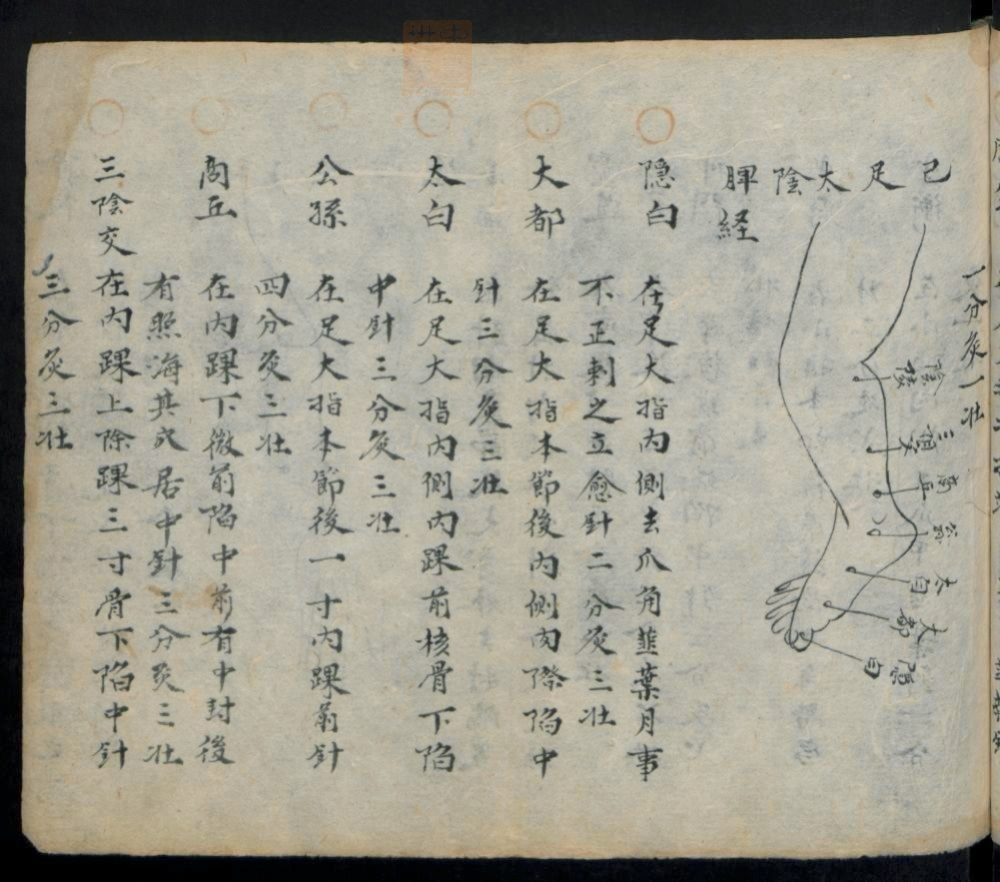 一分灸一壮
己足太陰
脾経
陰陵
三阴交
商丘
公孫
太白
大都
隠白
隠白 在足大指内側去爪角韮葉月事
不正刺之立愈針二分灸三壮
大都 在足大指本節後内側肉際陷中
針三分灸三壮
太白 在足大指内側内踝前核骨下陷
中針三分灸三壮
公孫 在足大指本節後一寸内踝前針
四分灸三壮
商丘 在内踝下微前陷中前有中封後
有照海其穴居中針三分灸三壮
三陰交 在内踝上除踝三寸骨下陷中針
三分灸三壮